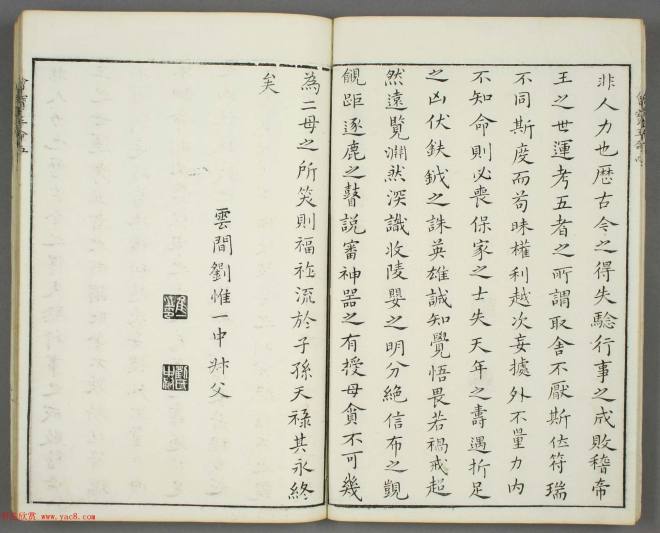 非人力也歷古今之得失驗行事之成敗稽帝
王之世運考五者之所謂取舍不厭斯位符瑞
不同斯度而苟昧權利越次妄據外不量力內
不知命則必喪保家之士失天年之壽遇折足
之凶伏鈇鉞之誅英雄誠知覺悟畏若禍戒超
然遠覽淵然深識收陵嬰之明分絕信布之覬
覦距逐鹿之瞽說審神器之有授毋貪不可幾
為二母之所笑則福祚流於子孫天祿其永終
矣
雲間劉惟一中尗父
www.yac8.com